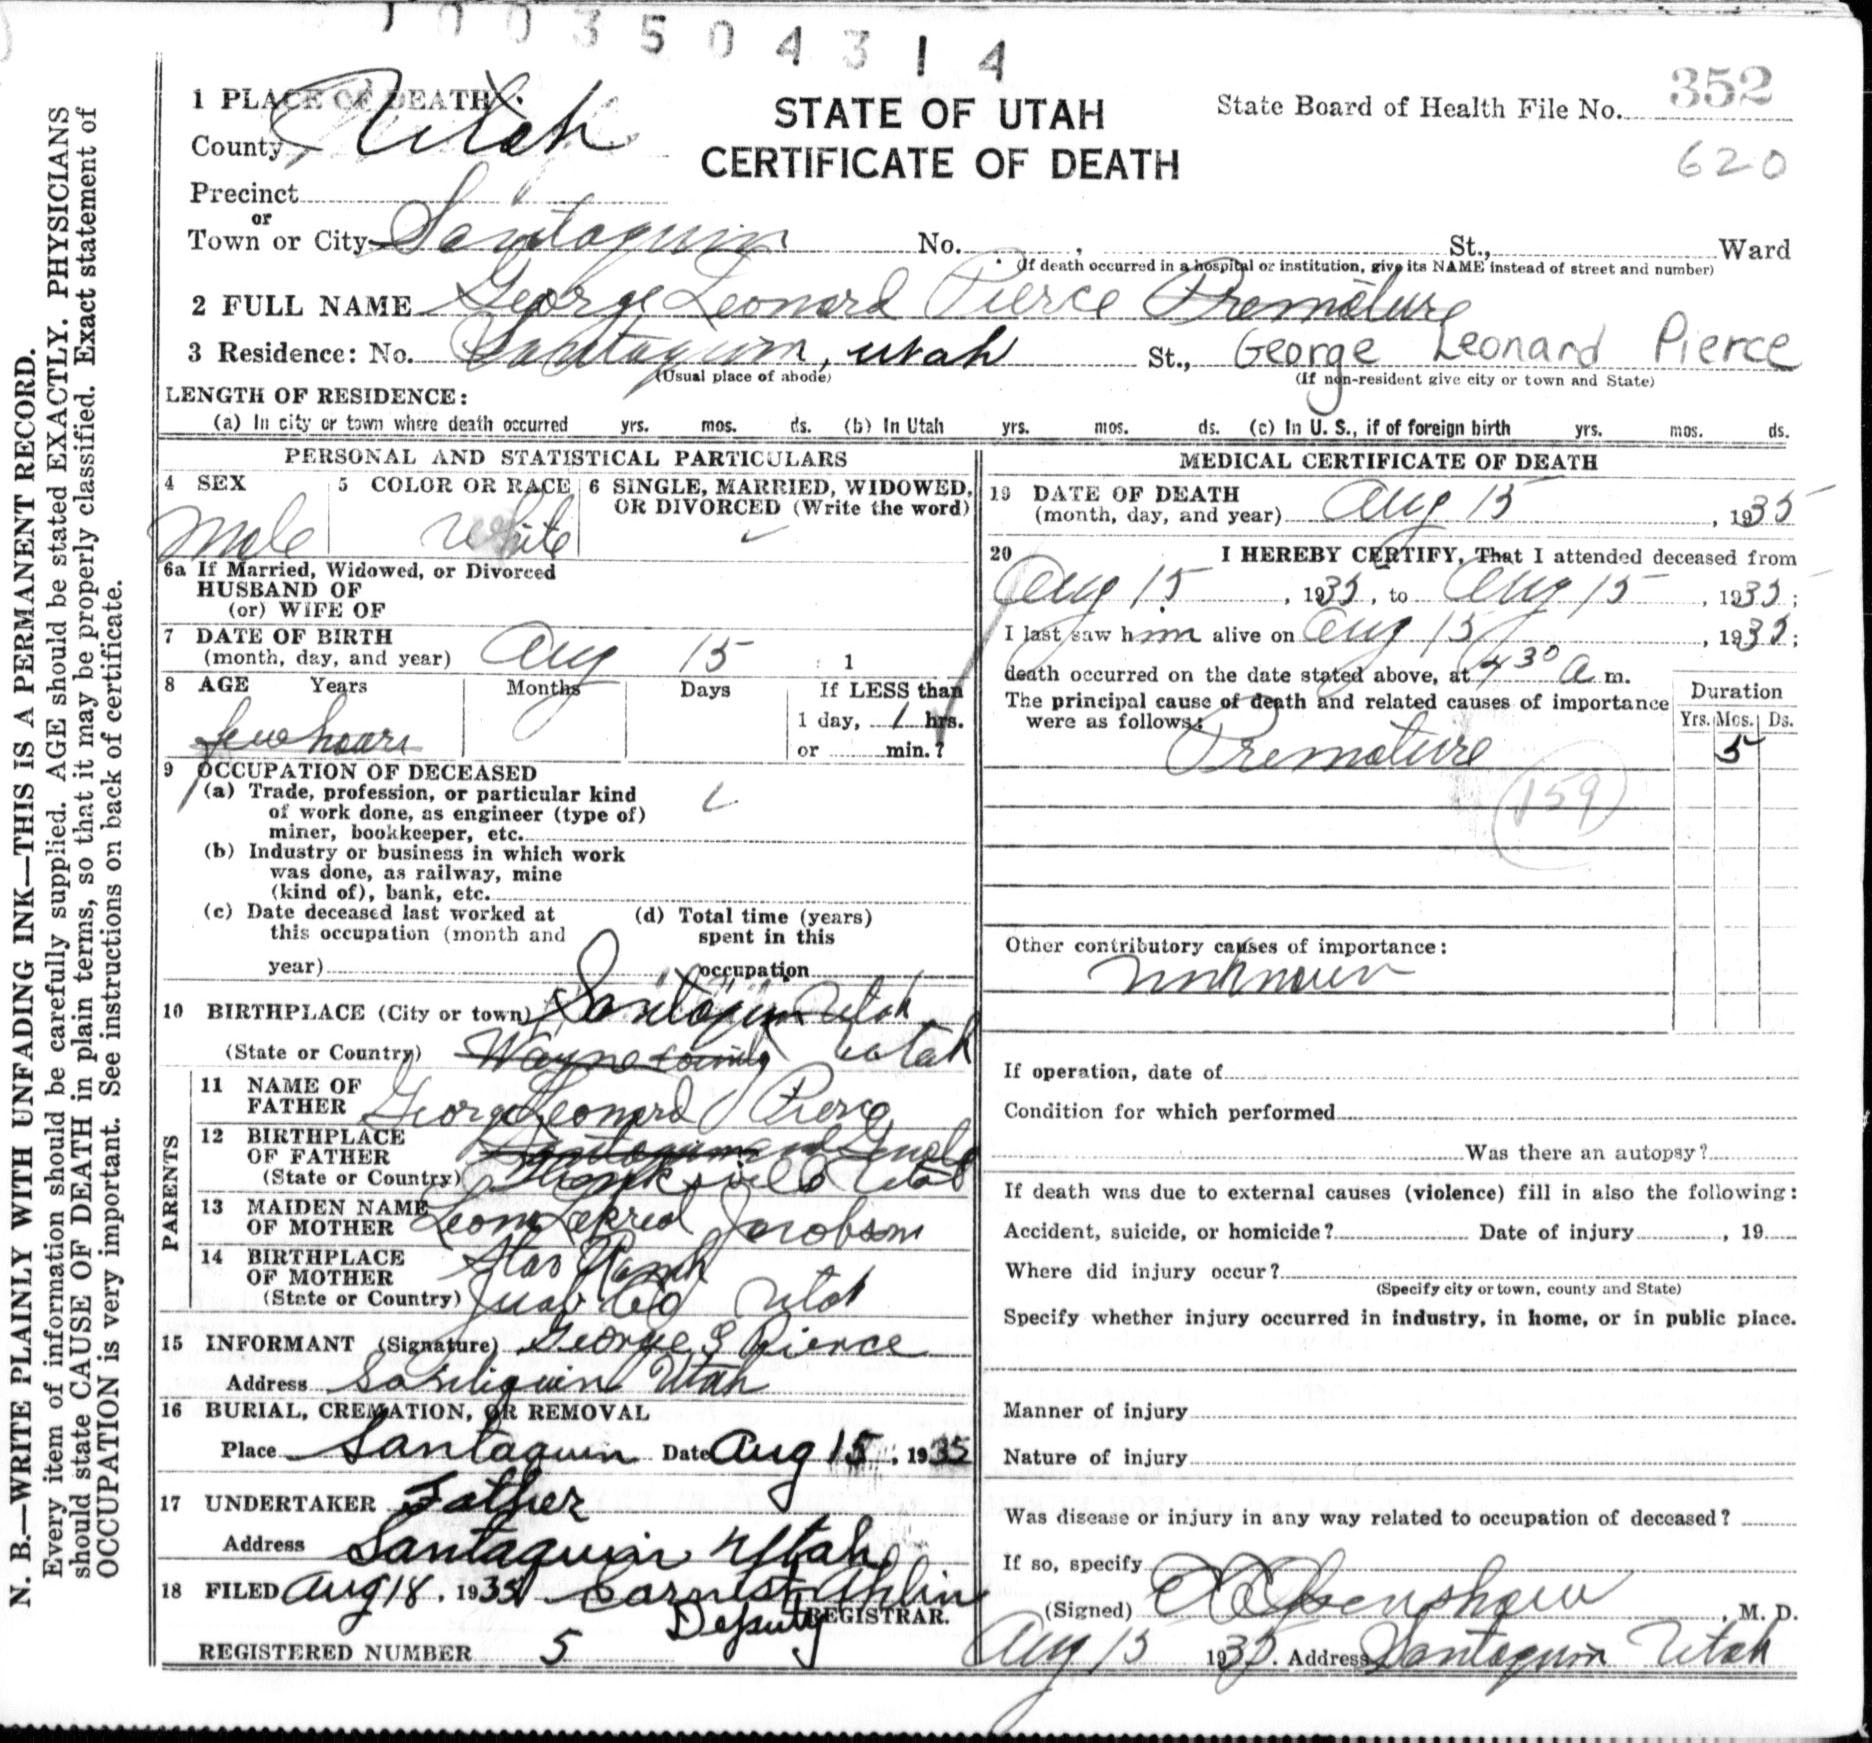 1003504314
1 PLACE OF DEATH
STATE OF UTAH
CERTIFICATE OF DEATH
State Board of Health File No. 352
620
County Utah
Precinct
or
Town or City Santaquin No. , St., Ward
(If death occurred in a hospital or institution, give its NAME instead of street and number)
2 FULL NAME George Leonard Pierce Premature
3 Residence: No. Santaquin, Utah St., George Leonard Pierce
(Usual place of abode) (If non-resident give city or town and State)
LENGTH OF RESIDENCE:
(a) In city or town where death occurred yrs. mos. ds. (b) In Utah yrs. mos. ds. (c) In U. S., if of foreign birth yrs. mos. ds.
PERSONAL AND STATISTICAL PARTICULARS
4 SEX
Male
5 COLOR OR RACE
White
6 SINGLE, MARRIED, WIDOWED,
OR DIVORCED (Write the word)
6a If Married, Widowed, or Divorced
HUSBAND OF
(or) WIFE OF
7 DATE OF BIRTH
(month, day, and year) Aug 15 1
8 AGE Years Months Days If LESS than
few hours 1 day, 1 hrs.
or min.?
9 OCCUPATION OF DECEASED
(a) Trade, profession, or particular kind
of work done, as engineer (type of)
miner, bookkeeper, etc.
(b) Industry or business in which work
was done, as railway, mine
(kind of), bank, etc.
(c) Date deceased last worked at
this occupation (month and
year)
(d) Total time (years)
spent in this
occupation
10 BIRTHPLACE (City or town) Santaquin Utah
(State or Country) Wayne County Utah
PARENTS
11 NAME OF
FATHER George Leonard Pierce
12 BIRTHPLACE
OF FATHER Santaquin
(State or Country) Utah
13 MAIDEN NAME
OF MOTHER Jacobson
14 BIRTHPLACE
OF MOTHER Star Ranch
(State or Country) Juab Co Utah
15 INFORMANT (Signature) George L Pierce
Address Santaquin Utah
16 BURIAL, CREMATION, OR REMOVAL
Place Santaquin Date Aug 15, 1935
17 UNDERTAKER Father
Address Santaquin Utah
18 FILED Aug 18, 1935 Earnest Ahlin
Deputy REGISTRAR.
REGISTERED NUMBER 5
MEDICAL CERTIFICATE OF DEATH
19 DATE OF DEATH
(month, day, and year) Aug 15, 1935
20 I HEREBY CERTIFY, That I attended deceased from
Aug 15, 1935, to Aug 15, 1935;
I last saw him alive on Aug 15, 1935;
death occurred on the date stated above, at 4 30 a m.
The principal cause of death and related causes of importance
were as follows:
Duration
Yrs. Mos. Ds.
Premature 5
159
Other contributory causes of importance:
unknown
If operation, date of
Condition for which performed
Was there an autopsy?
If death was due to external causes (violence) fill in also the following:
Accident, suicide, or homicide? Date of injury , 19
Where did injury occur?
(Specify city or town, county and State)
Specify whether injury occurred in industry, in home, or in public place.
Manner of injury
Nature of injury
Was disease or injury in any way related to occupation of deceased?
If so, specify
(Signed) , M. D.
Aug 15 1935. Address Santaquin Utah
N. B.—WRITE PLAINLY WITH UNFADING INK—THIS IS A PERMANENT RECORD.
Every item of information should be carefully supplied. AGE should be stated EXACTLY. PHYSICIANS
should state CAUSE OF DEATH in plain terms, so that it may be properly classified. Exact statement of
OCCUPATION is very important. See instructions on back of certificate.